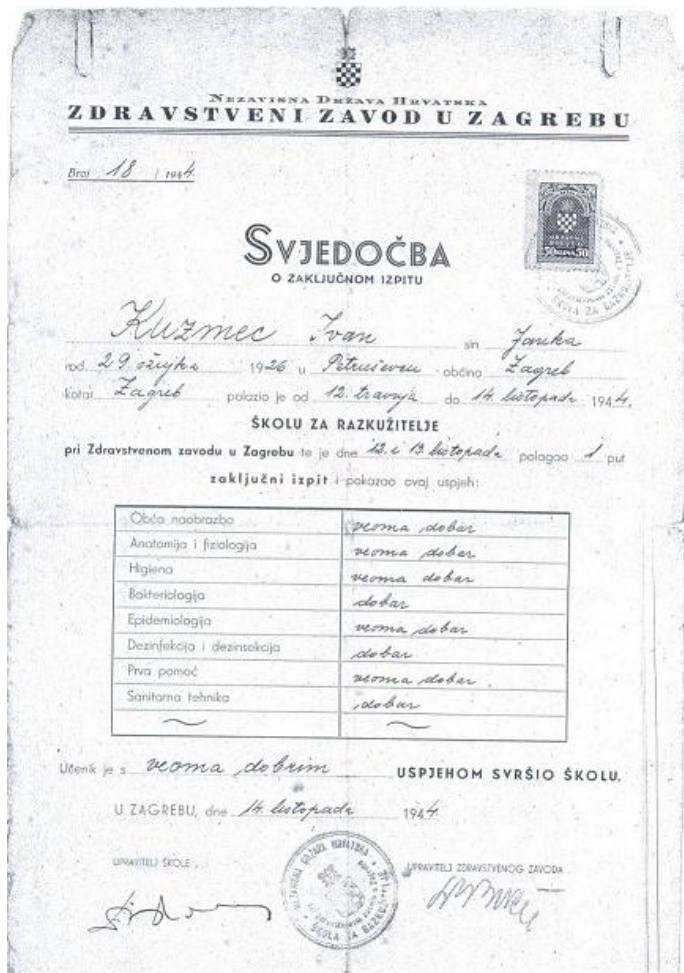 NEZAVISNA DRŽAVA HRVATSKA
ZDRAVSTVENI ZAVOD U ZAGREBU
Broj 18 / 1944.
SVJEDOČBA
O ZAKLJUČNOM IZPITU
Kuzmec Ivan sin Janka
rod. 29. ožujka 1926 u Petruševcu občina Zagreb
kotar Zagreb polazio je od 12. travnja do 14. listopada 1944.
ŠKOLU ZA RAZKUŽITELJE
pri Zdravstvenom zavodu u Zagrebu te je dne 12. i 13. listopada polagao 1 put
zaključni izpit i pokazao ovaj uspjeh:
Obća naobrazba veoma dobar
Anatomija i fiziologija veoma dobar
Higiena veoma dobar
Bakteriologija dobar
Epidemiologija veoma dobar
Dezinfekcija i dezinsekcija dobar
Prva pomoć veoma dobar
Sanitarna tehnika dobar
Učenik je s veoma dobrim USPJEHOM SVRŠIO ŠKOLU.
U ZAGREBU, dne 14. listopada 1944.
UPRAVITELJ ŠKOLE
UPRAVITELJ ZDRAVSTVENOG ZAVODA
NEZAVISNA DRŽAVA HRVATSKA
ŠKOLA ZA